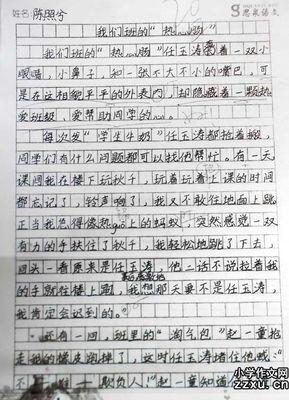 姓名:陈照兮
思泉语文
我们班的"热心肠"
我们班的"热心肠"任玉涛有着一双小
眼睛，小鼻子，和一张不大不小的嘴巴，可
是在这相貌平平的外表内，却隐藏着一颗热
爱班级、爱帮助同学的
每次发"学生牛奶"任玉涛都抢着搬，
同学们有什么问题都可以找他帮忙。有一天
课间我在楼下玩秋千，玩着玩着上课的时间
都忘记了，铃声响了，我又不敢往地面上跳
正当我急得像热guo上的蚂蚁，突然感觉一双
有力的手扶住了秋千，我轻松地跳了下去，
回头一看原来是任玉涛，他二话不说拉着我
的手就往楼上跑，我想那天要不是任玉涛，
我肯定会迟到的。
还有一回，班里的"淘气包"赵一童抢
走我的橡皮跑掉了，这时任玉涛堵住他喊:"
不 欺负人!"赵一童知道
小学作文网
zzxu.cn